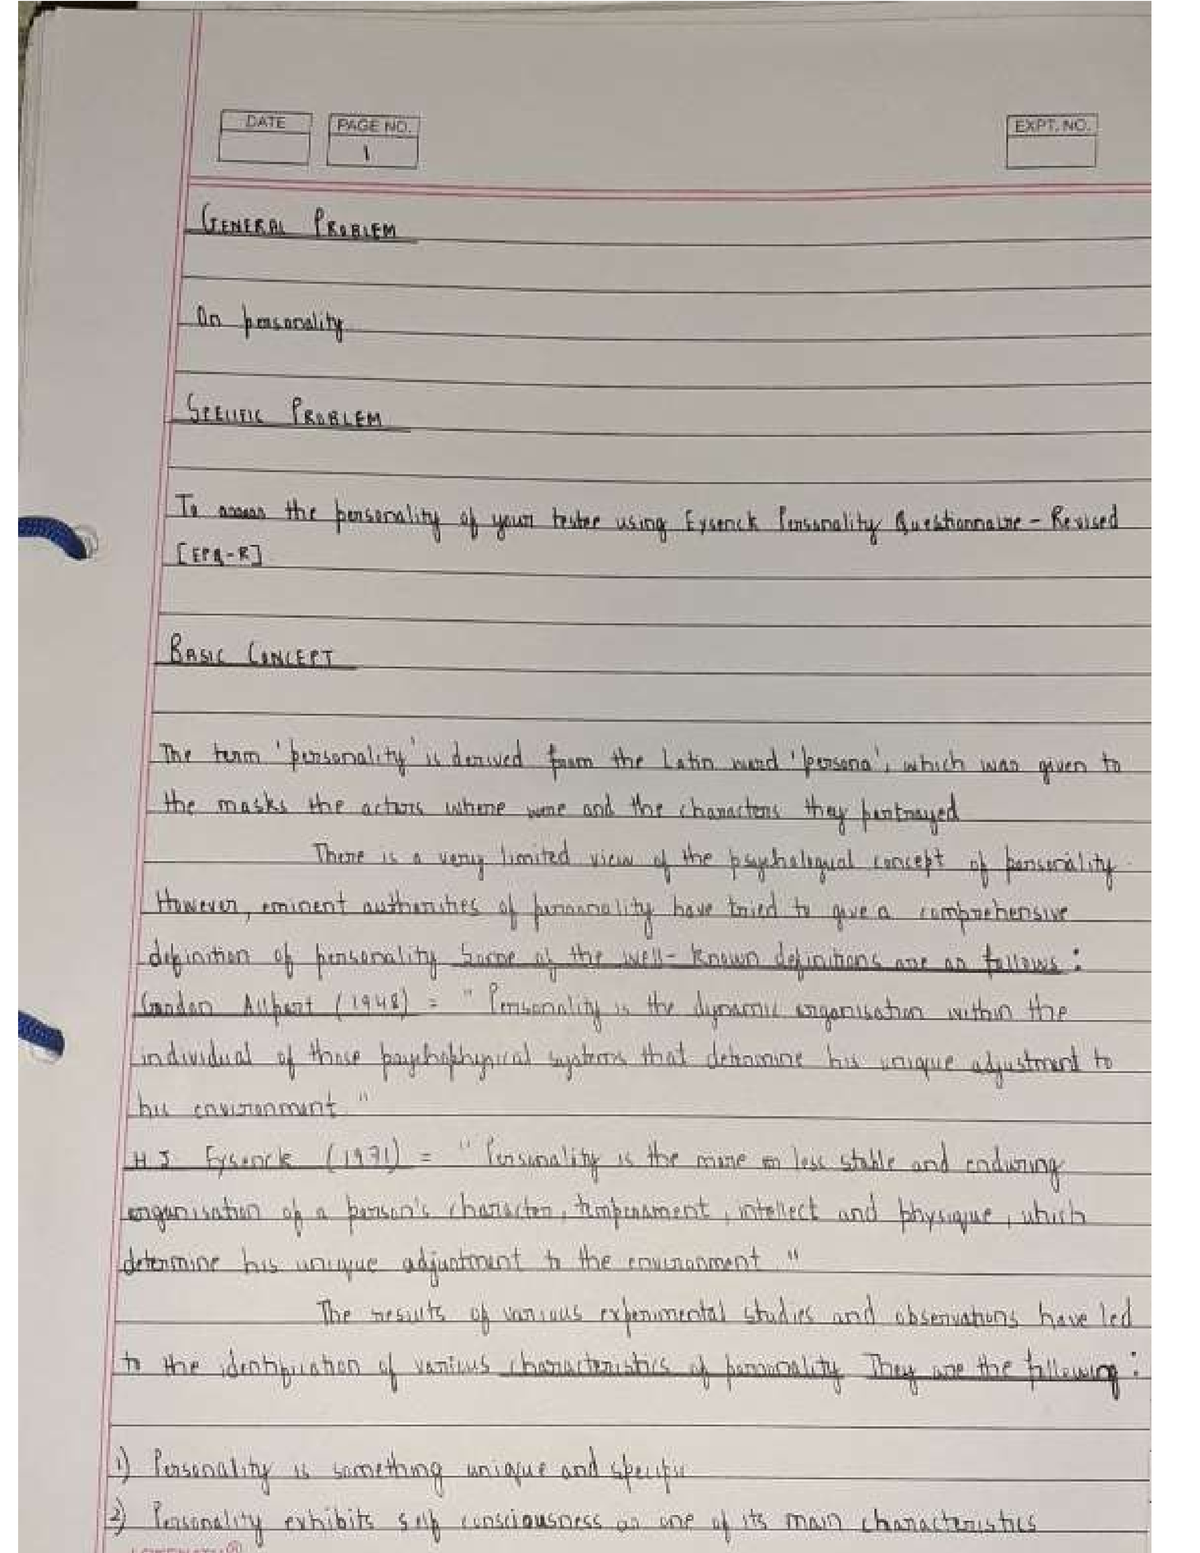 DATE
PAGE NO.
1
EXPT. NO.
GENERAL PROBLEM
On personality
SPECIFIC PROBLEM
To assess the personality of your testee using Eysenck Personality Questionnaire - Revised
[EPQ-R]
BASIC CONCEPT
The term 'personality' is derived from the Latin word 'persona', which was given to
the masks the actors where wore and the characters they portrayed
There is a very limited view of the psychological concept of personality.
However, eminent authorities of personality have tried to give a comprehensive
definition of personality Some of the well-known definitions are as follows:
Gordon Allport (1948) = "Personality is the dynamic organisation within the
individual of those psychophysical systems that determine his unique adjustment to
his environment"
H J Eysenck (1971) = "Personality is the more or less stable and enduring
organisation of a person's character, temperament, intellect and physique, which
determine his unique adjustment to the environment"
The results of various experimental studies and observations have led
to the identification of various characteristics of personality They are the following:
1) Personality is something unique and specific
2) Personality exhibits self consciousness as one of its main characteristics